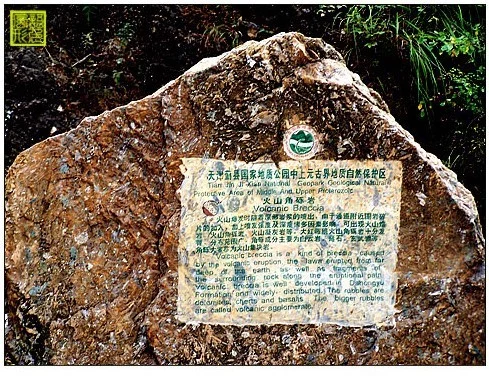 天津蓟县国家地质公园中上元古界地质自然保护区
Tian Jin Ji Xian National Geopark Geological Nature
Protective Area of Middle And Upper Proterozoic
火山角砾岩
Volcanic Breccia
火山爆发时随着岩浆的喷出,由于通道附近围岩碎
片的加入,
火山角砾岩、火山凝灰岩等。大红峪组火山角砾岩十分发
育,分布范围广,角砾成分主要为白云岩、燧石、玄武岩等,
Volcanic breccia is a kind of breccia caused
by the volcanic eruption, the lawa erupted from far
deep of the earth as well as fragments of
the surrounding rock along the eruptional path.
Volcanic breccia is well developed in Dahongyu
Formation and widely distributed. The rubbles are
dolomites, cherts and basalts. The bigger rubbles
are called volcanic agglomerate.